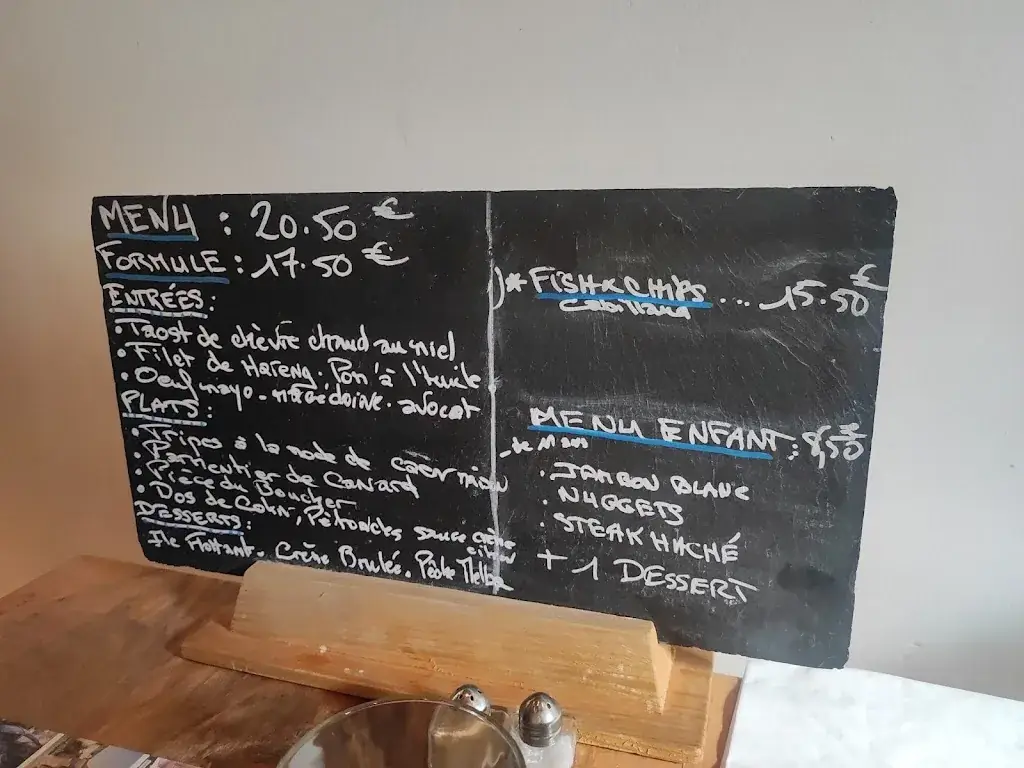 MENU : 20.50 €
FORMULE : 17.50 €
ENTRÉES :
• Taost de chèvre chaud au miel
• Filet de Hareng. Pom' à l'huile
• Oeuf mayo. macédoine. avocat
PLATS :
• Tripes à la mode de Caen maison
• Parmentier de Canard
• Pièce du Boucher
• Dos de Colin, Pétoncles sauce crème
DESSERTS :
Ile Flottant. Crème Brulée. Pêche Melba
* FISH & CHIPS ... 15.50 €
Cabillaud
MENU ENFANT : 8,50 €
• JAMBON BLANC
• NUGGETS
• STEAK HACHÉ
+ 1 DESSERT